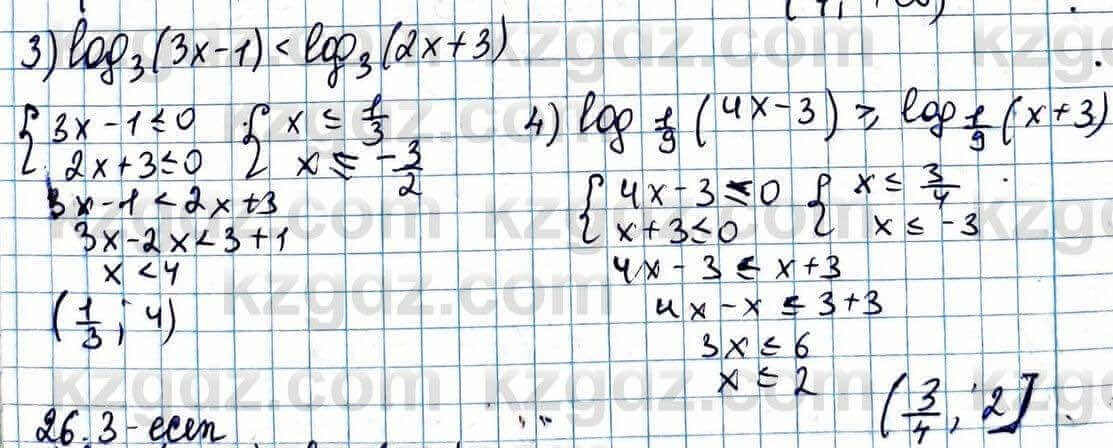 3) log₃(3x-1) < log₃(2x+3)
{ 3x-1≤0 { x ≤ 1/3
{ 2x+3≤0 { x ≤ -3/2
3x-1<2x+3
3x-2x<3+1
x<4
(1/3; 4)
4) log_{1/9}(4x-3) ≥ log_{1/9}(x+3)
{ 4x-3≤0 { x≤ 3/4
{ x+3≤0 { x ≤ -3
4x-3 ≤ x+3
4x-x ≤ 3+3
3x ≤ 6
x ≤ 2
(3/4; 2]
26.3-есеп
kzgdz.com